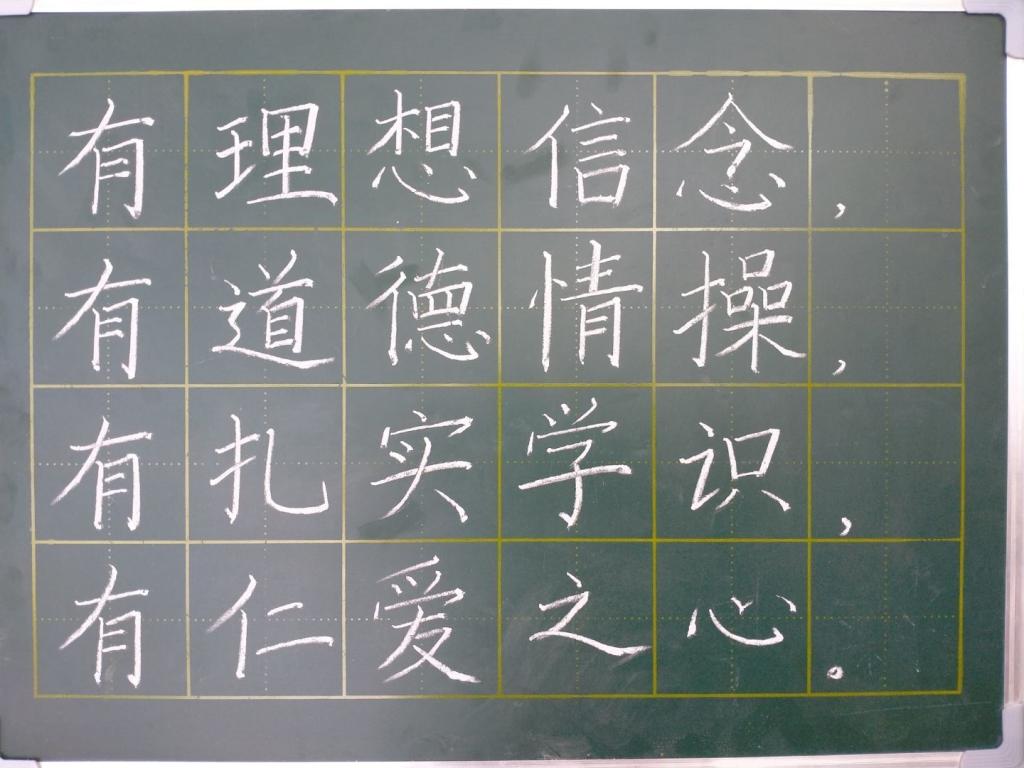 有理想信念,
有道德情操,
有扎实学识,
有仁爱之心。